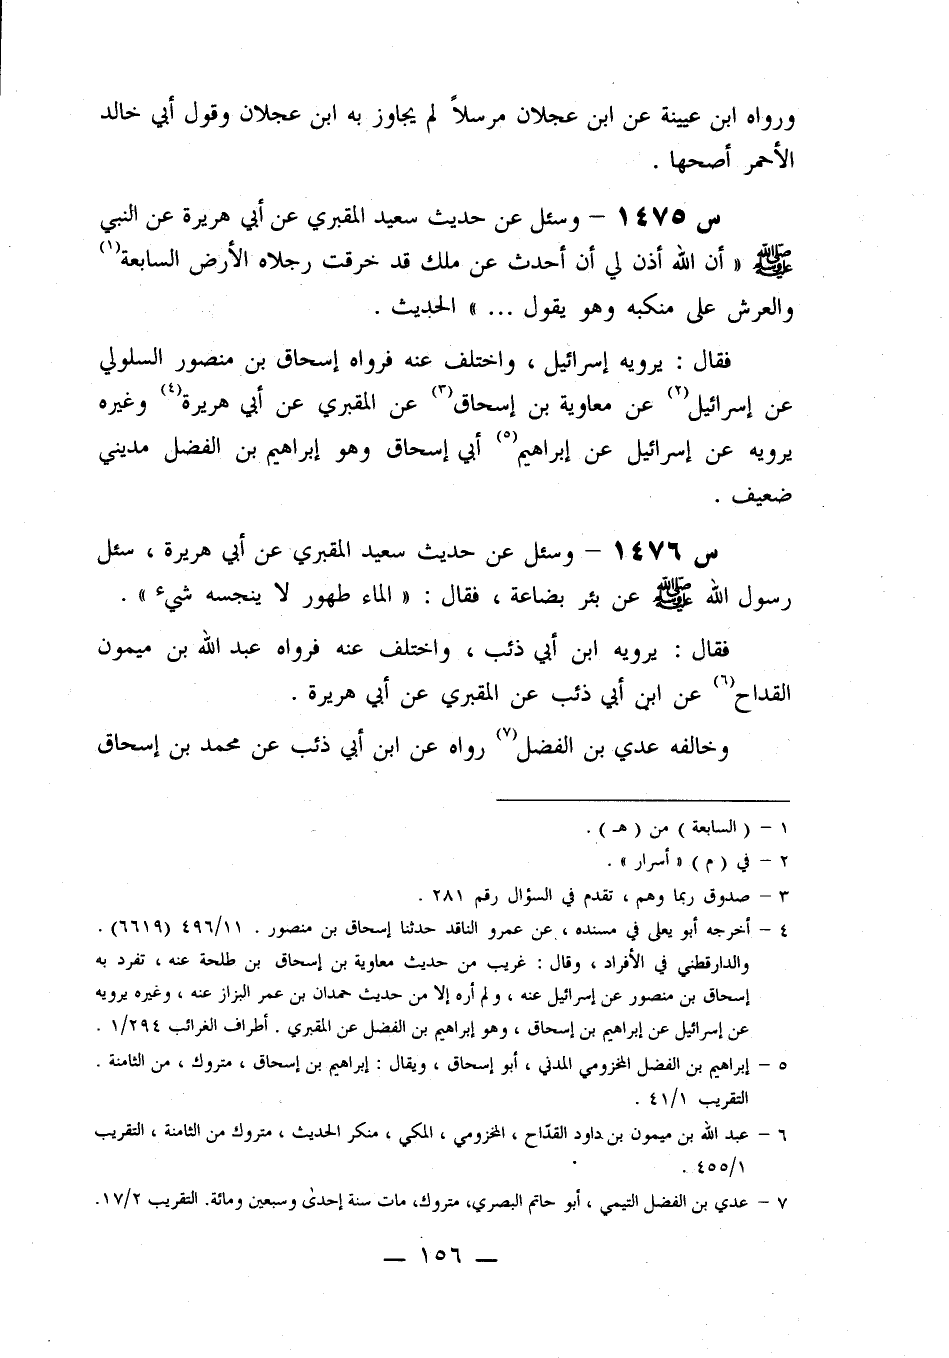 ورواه ابن عيينة عن ابن عجلان مرسلاً لم يجاوز به ابن عجلان وقول أبي خالد
الأحمر أصحها .
س ١٤٧٥ – وسئل عن حديث سعيد المقبري عن أبي هريرة عن النبي
ﷺ « أن الله أذن لي أن أحدث عن ملك قد خرقت رجلاه الأرض السابعة(١)
والعرش على منكبه وهو يقول ... » الحديث .
فقال : يرويه إسرائيل ، واختلف عنه فرواه إسحاق بن منصور السلولي
عن إسرائيل(٢) عن معاوية بن إسحاق(٣) عن المقبري عن أبي هريرة(٤) وغيره
يرويه عن إسرائيل عن إبراهيم(٥) أبي إسحاق وهو إبراهيم بن الفضل مديني
ضعيف .
س ١٤٧٦ – وسئل عن حديث سعيد المقبري عن أبي هريرة ، سئل
رسول الله ﷺ عن بئر بضاعة ، فقال : « الماء طهور لا ينجسه شيء » .
فقال : يرويه ابن أبي ذئب ، واختلف عنه فرواه عبد الله بن ميمون
القداح(٦) عن ابن أبي ذئب عن المقبري عن أبي هريرة .
وخالفه عدي بن الفضل(٧) رواه عن ابن أبي ذئب عن محمد بن إسحاق
١ – ( السابعة ) من ( هـ ) .
٢ – في ( م ) « أسرار » .
٣ – صدوق ربما وهم ، تقدم في السؤال رقم ٢٨١ .
٤ – أخرجه أبو يعلى في مسنده ، عن عمرو الناقد حدثنا إسحاق بن منصور . ٤٩٦/١١ (٦٦١٩) .
والدارقطني في الأفراد ، وقال : غريب من حديث معاوية بن إسحاق بن طلحة عنه ، تفرد به
إسحاق بن منصور عن إسرائيل عنه ، ولم أره إلا من حديث حمدان بن عمر البزاز عنه ، وغيره يرويه
عن إسرائيل عن إبراهيم بن إسحاق ، وهو إبراهيم بن الفضل عن المقبري . أطراف الغرائب ١/٢٩٤ .
٥ – إبراهيم بن الفضل المخزومي المدني ، أبو إسحاق ، ويقال : إبراهيم بن إسحاق ، متروك ، من الثامنة .
التقريب ٤١/١ .
٦ – عبد الله بن ميمون بن داود القدّاح ، المخزومي ، المكي ، منكر الحديث ، متروك من الثامنة ، التقريب
٤٥٥/١ .
٧ – عدي بن الفضل التيمي ، أبو حاتم البصري، متروك، مات سنة إحدىٰ وسبعين ومائة. التقريب ١٧/٢.
— ١٥٦ —